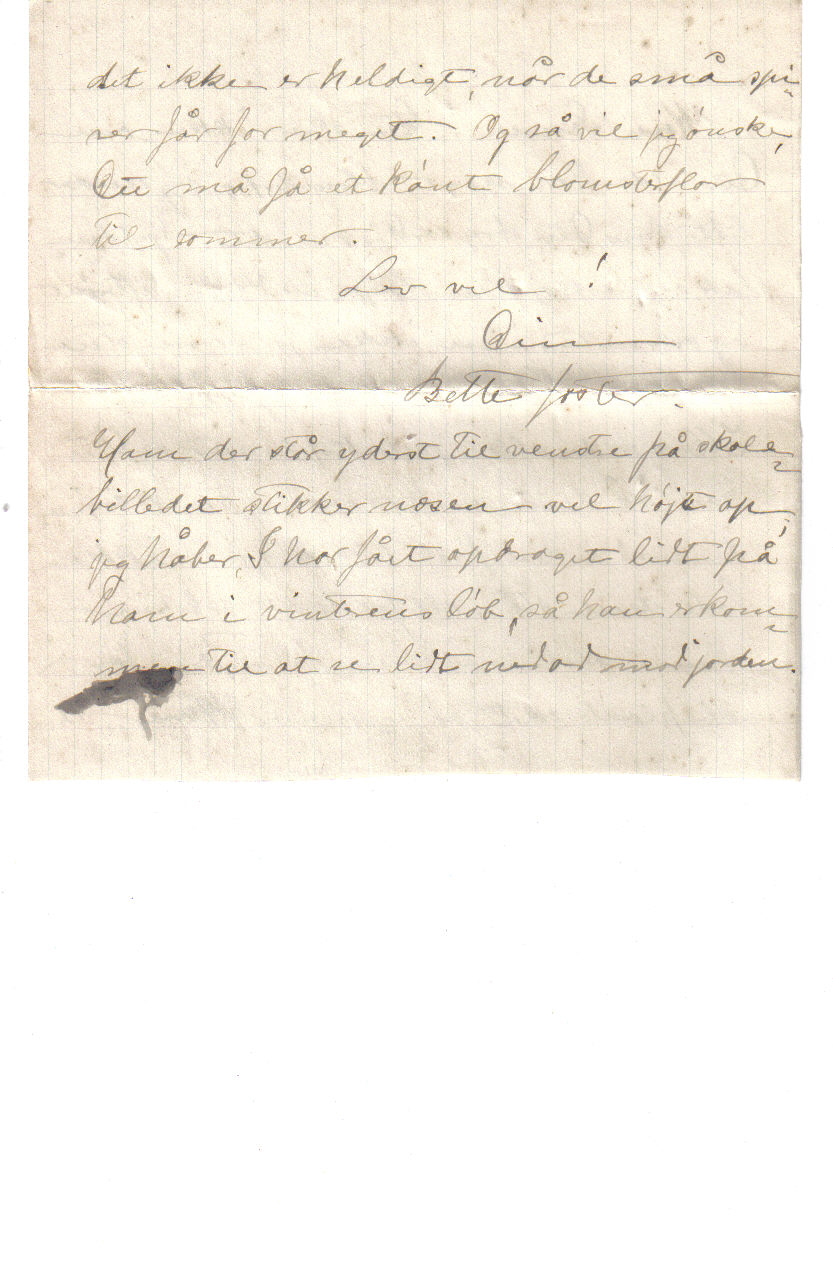 det ikke er heldigt, når de små spi-
rer får for meget. Og så vil jeg ønske,
Du må få et kønt blomsterflor
til sommer.
Lev vel!
Din
Bette søster.
Ham der står yderst til venstre på skole-
billedet stikker næsen vel højt op,
jeg håber, I har fået opdraget lidt på
ham i vinterens løb, så han er kom-
men til at se lidt nedad mod jorden.